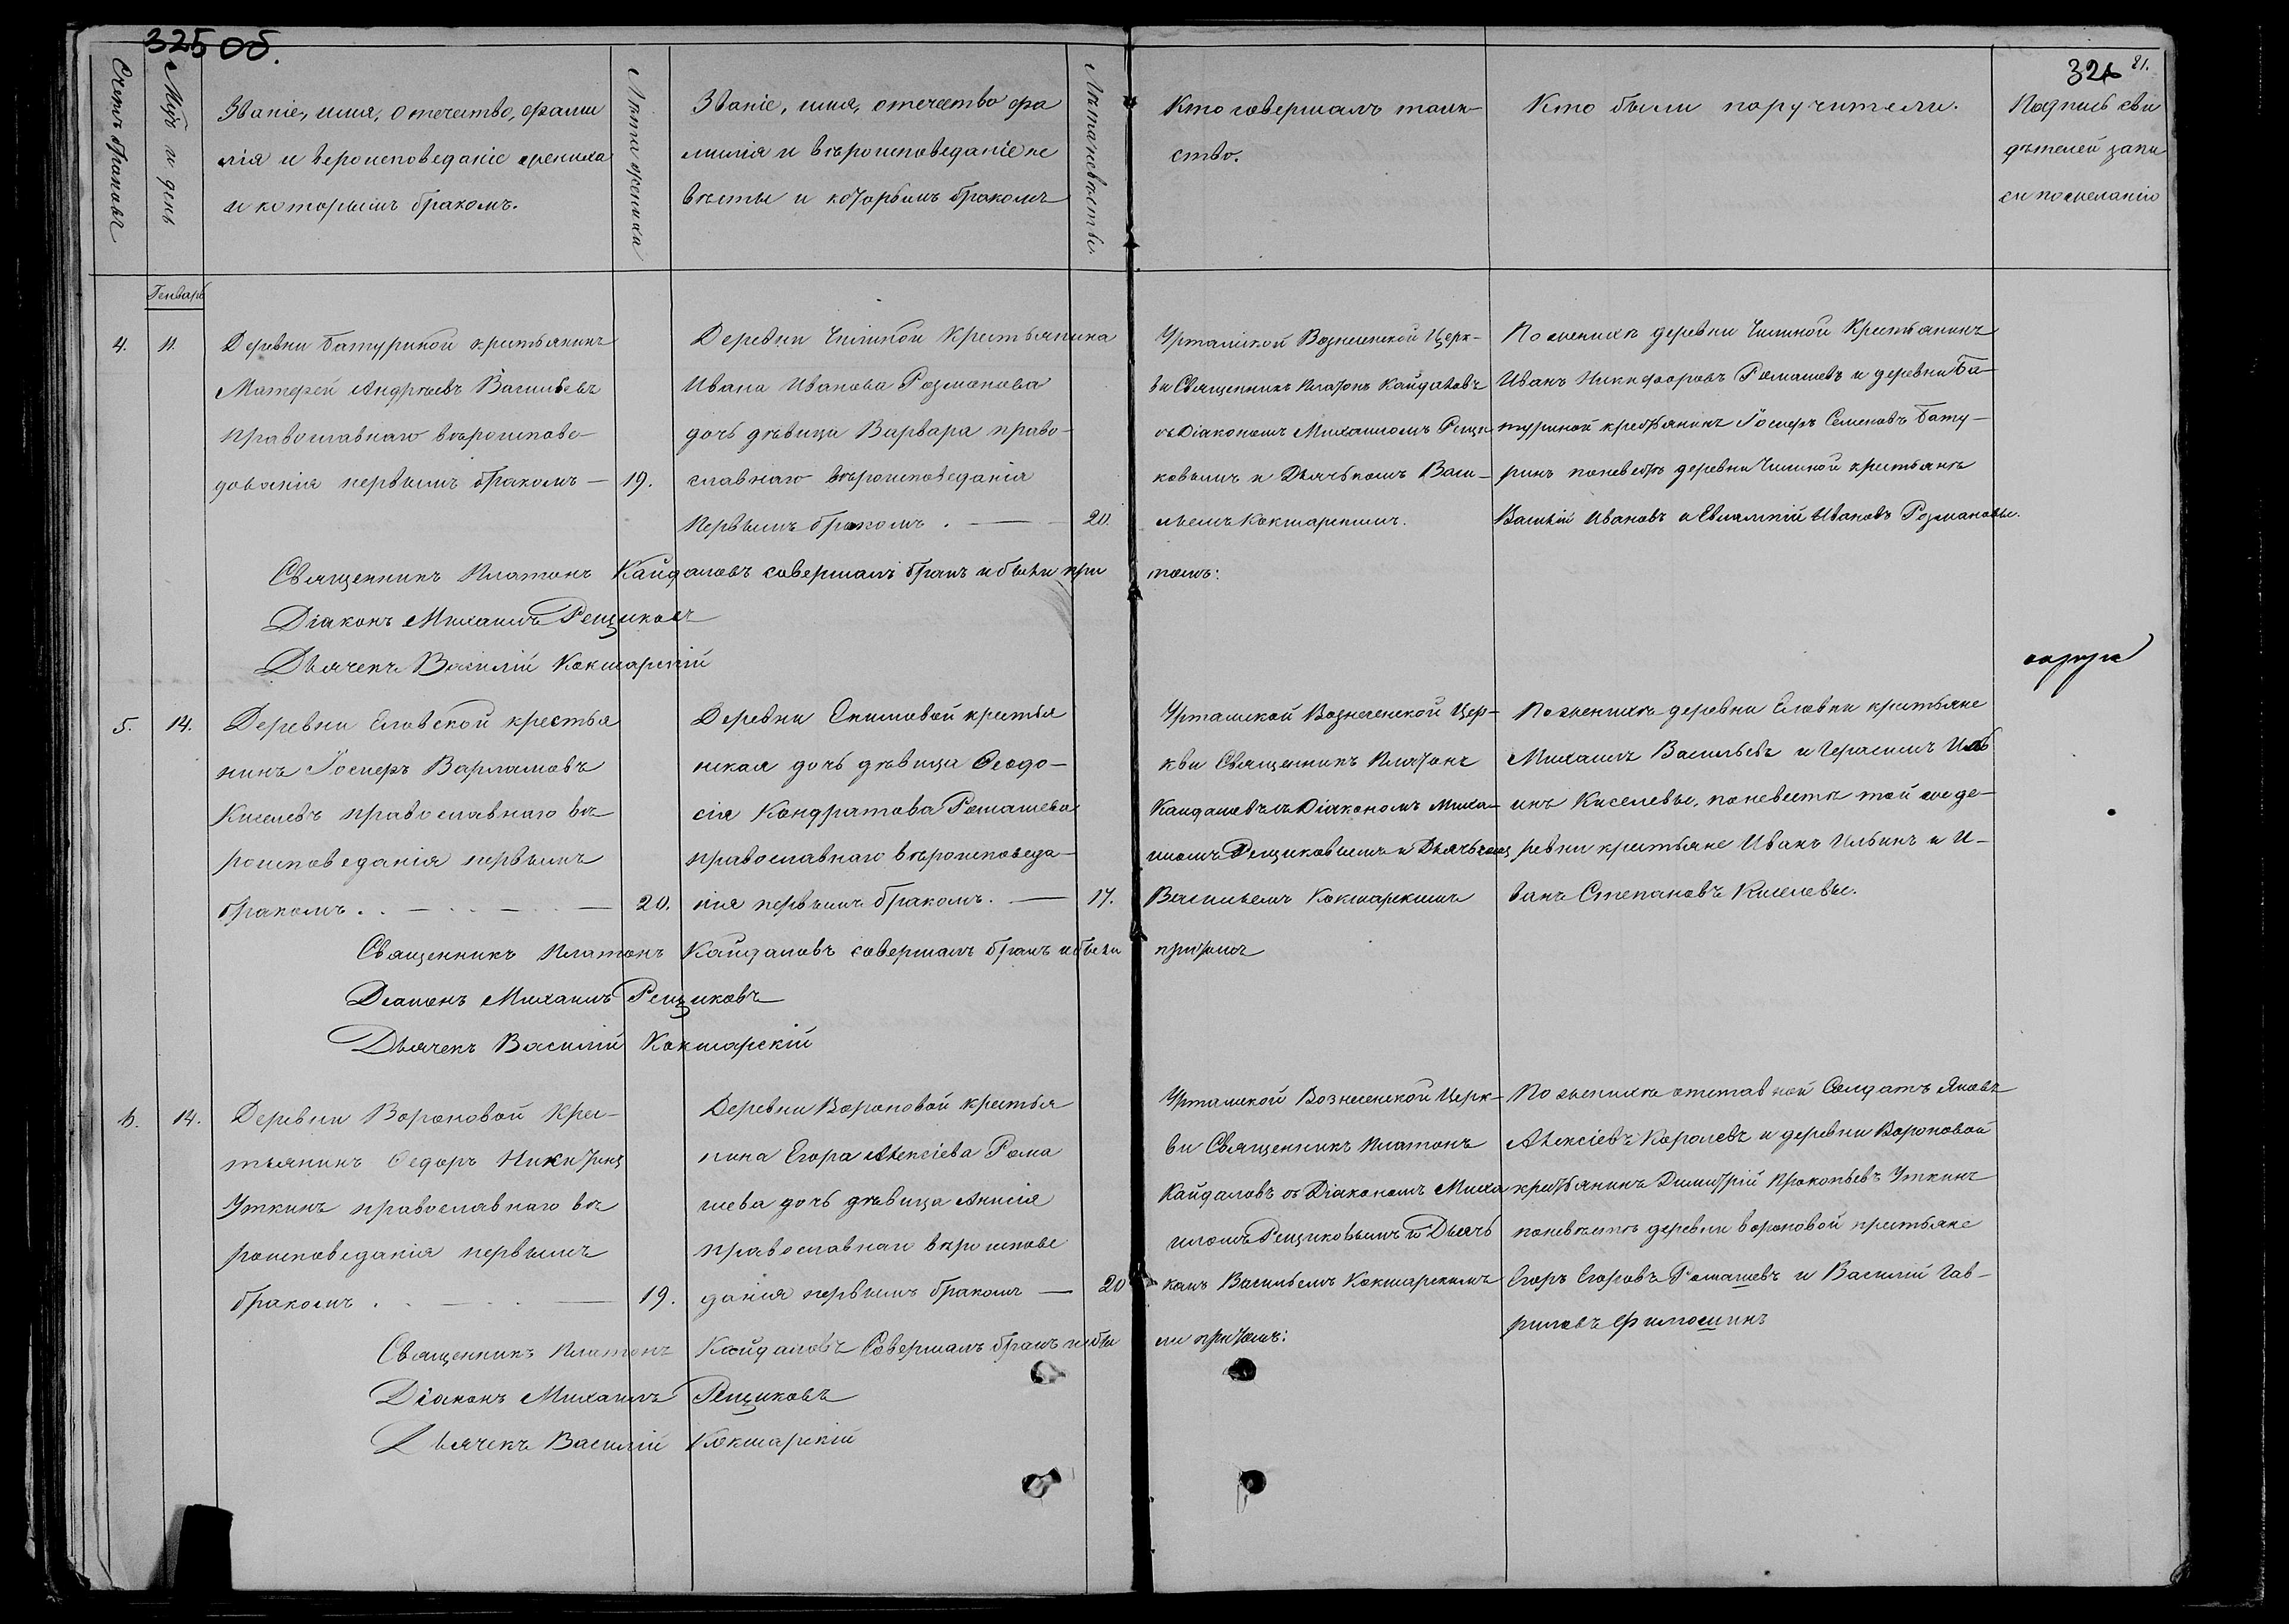 325 об.
326
21.
Счетъ браковъ
Мѣс. и день
Званіе, имя, отечество, фами
лія и вероисповеданіе жениха
и которымъ бракомъ.
Лѣта жениха
Званіе, имя, отечество фа
милія и вѣроисповеданіе не
вѣсты и которымъ бракомъ
Лѣта невѣсты.
Кто совершалъ таин-
ство.
Кто были поручители.
Подпись сви
дѣтелей запи
си по желанію
Генварь
4.
11.
Деревни Батуриной крестьянинъ
Матфей Андреевъ Васильевъ
православнаго вѣроисПове-
дованія первымъ бракомъ —
19.
Деревни Чилиной Крестьянина
Ивана Иванова Розманова
дочь дѣвица Варвара право-
славнаго вѣроисповеданія
первымъ бракомъ . —
20.
Урталиской Вознесенской Церк-
ви Священникъ Платонъ Кайдаловъ
съ Діакономъ Михаиломъ Рещи
ковымъ и Дьячькомъ Васи-
льемъ Кокшарскимъ.
По женихѣ деревни Чилиной Крестьянинъ
Иванъ Никифоровъ Ромашевъ и деревни Ба-
туриной крестьянинъ Іосифъ Семеновъ Бату-
ринъ поневестѣ деревни Чилиной крестьяне
Василій Ивановъ и Евлампій Ивановъ Розмановы.
Священникъ Платонъ Кайдаловъ совершалъ бракъ и были при томъ:
Діаконъ Михаилъ Рещиковъ
Дьячекъ Василій Кокшарскій
5.
14.
Деревни Еловской крестья
нинъ Іосифъ Варламовъ
Киселевъ православнаго вѣ
роисповеданія первымъ
бракомъ . . — . . — . —
20.
Деревни Екимовой крестья
нская дочь дѣвица Ѳеодо-
сія Кондратова Ромашева
православнаго вѣроисповеда-
нія первымъ бракомъ. —
17.
Урталиской Вознесенской Цер-
кви Священникъ Платонъ
Кайдаловъ съ Діакономъ Миха-
иломъ Рещиковымъ и Дьячькомъ
Васильемъ Кокшарскимъ
По женихѣ деревни Еловки крестьяне
Михаилъ Васильевъ и Герасимъ Иль
инъ Киселевы, поневестѣ той же де-
ревни крестьяне Иванъ Ильинъ и И-
ванъ Степановъ Киселевы.
Священникъ Платонъ Кайдаловъ совершалъ бракъ и были притомъ
Діаконъ Михаилъ Рещиковъ
Дьячекъ Василій Кокшарскій
6.
14.
Деревни Вороновой Крес-
тьянинъ Ѳедоръ Никитинъ
Уткинъ православнаго вѣ
роисповеданія первымъ
бракомъ . — . . —
19.
Деревни Вороновой крестья
нина Егора Алексіева Рома
шева дочь дѣвица Анисія
православнаго вѣроисПове
данія первымъ бракомъ —
20
Урталиской Вознесенской Церк-
ви Священникъ Платонъ
Кайдаловъ съ Діакономъ Миха
иломъ Рещиковымъ и Дьячь
комъ Васильемъ Кокшарскимъ
По женихѣ отставной Солдатъ Яковъ
Алексіевъ Королевъ и деревни Вороновой
крестьянинъ Димитрій Прокопьевъ Уткинъ
поневѣстѣ деревни вороновой крестьяне
Егоръ Егоровъ Ромашевъ и Василій Гав-
риловъ Филошинъ
Священникъ Платонъ Кайдаловъ Совершалъ бракъ и бы ли притомъ:
Діаконъ Михаилъ Рещиковъ
Дьячекъ Василій Кокшарскій